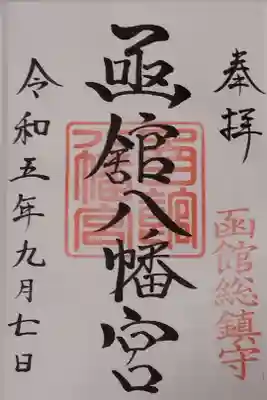 奉拝
函館総鎮守
函館八幡宮
令和五年九月七日